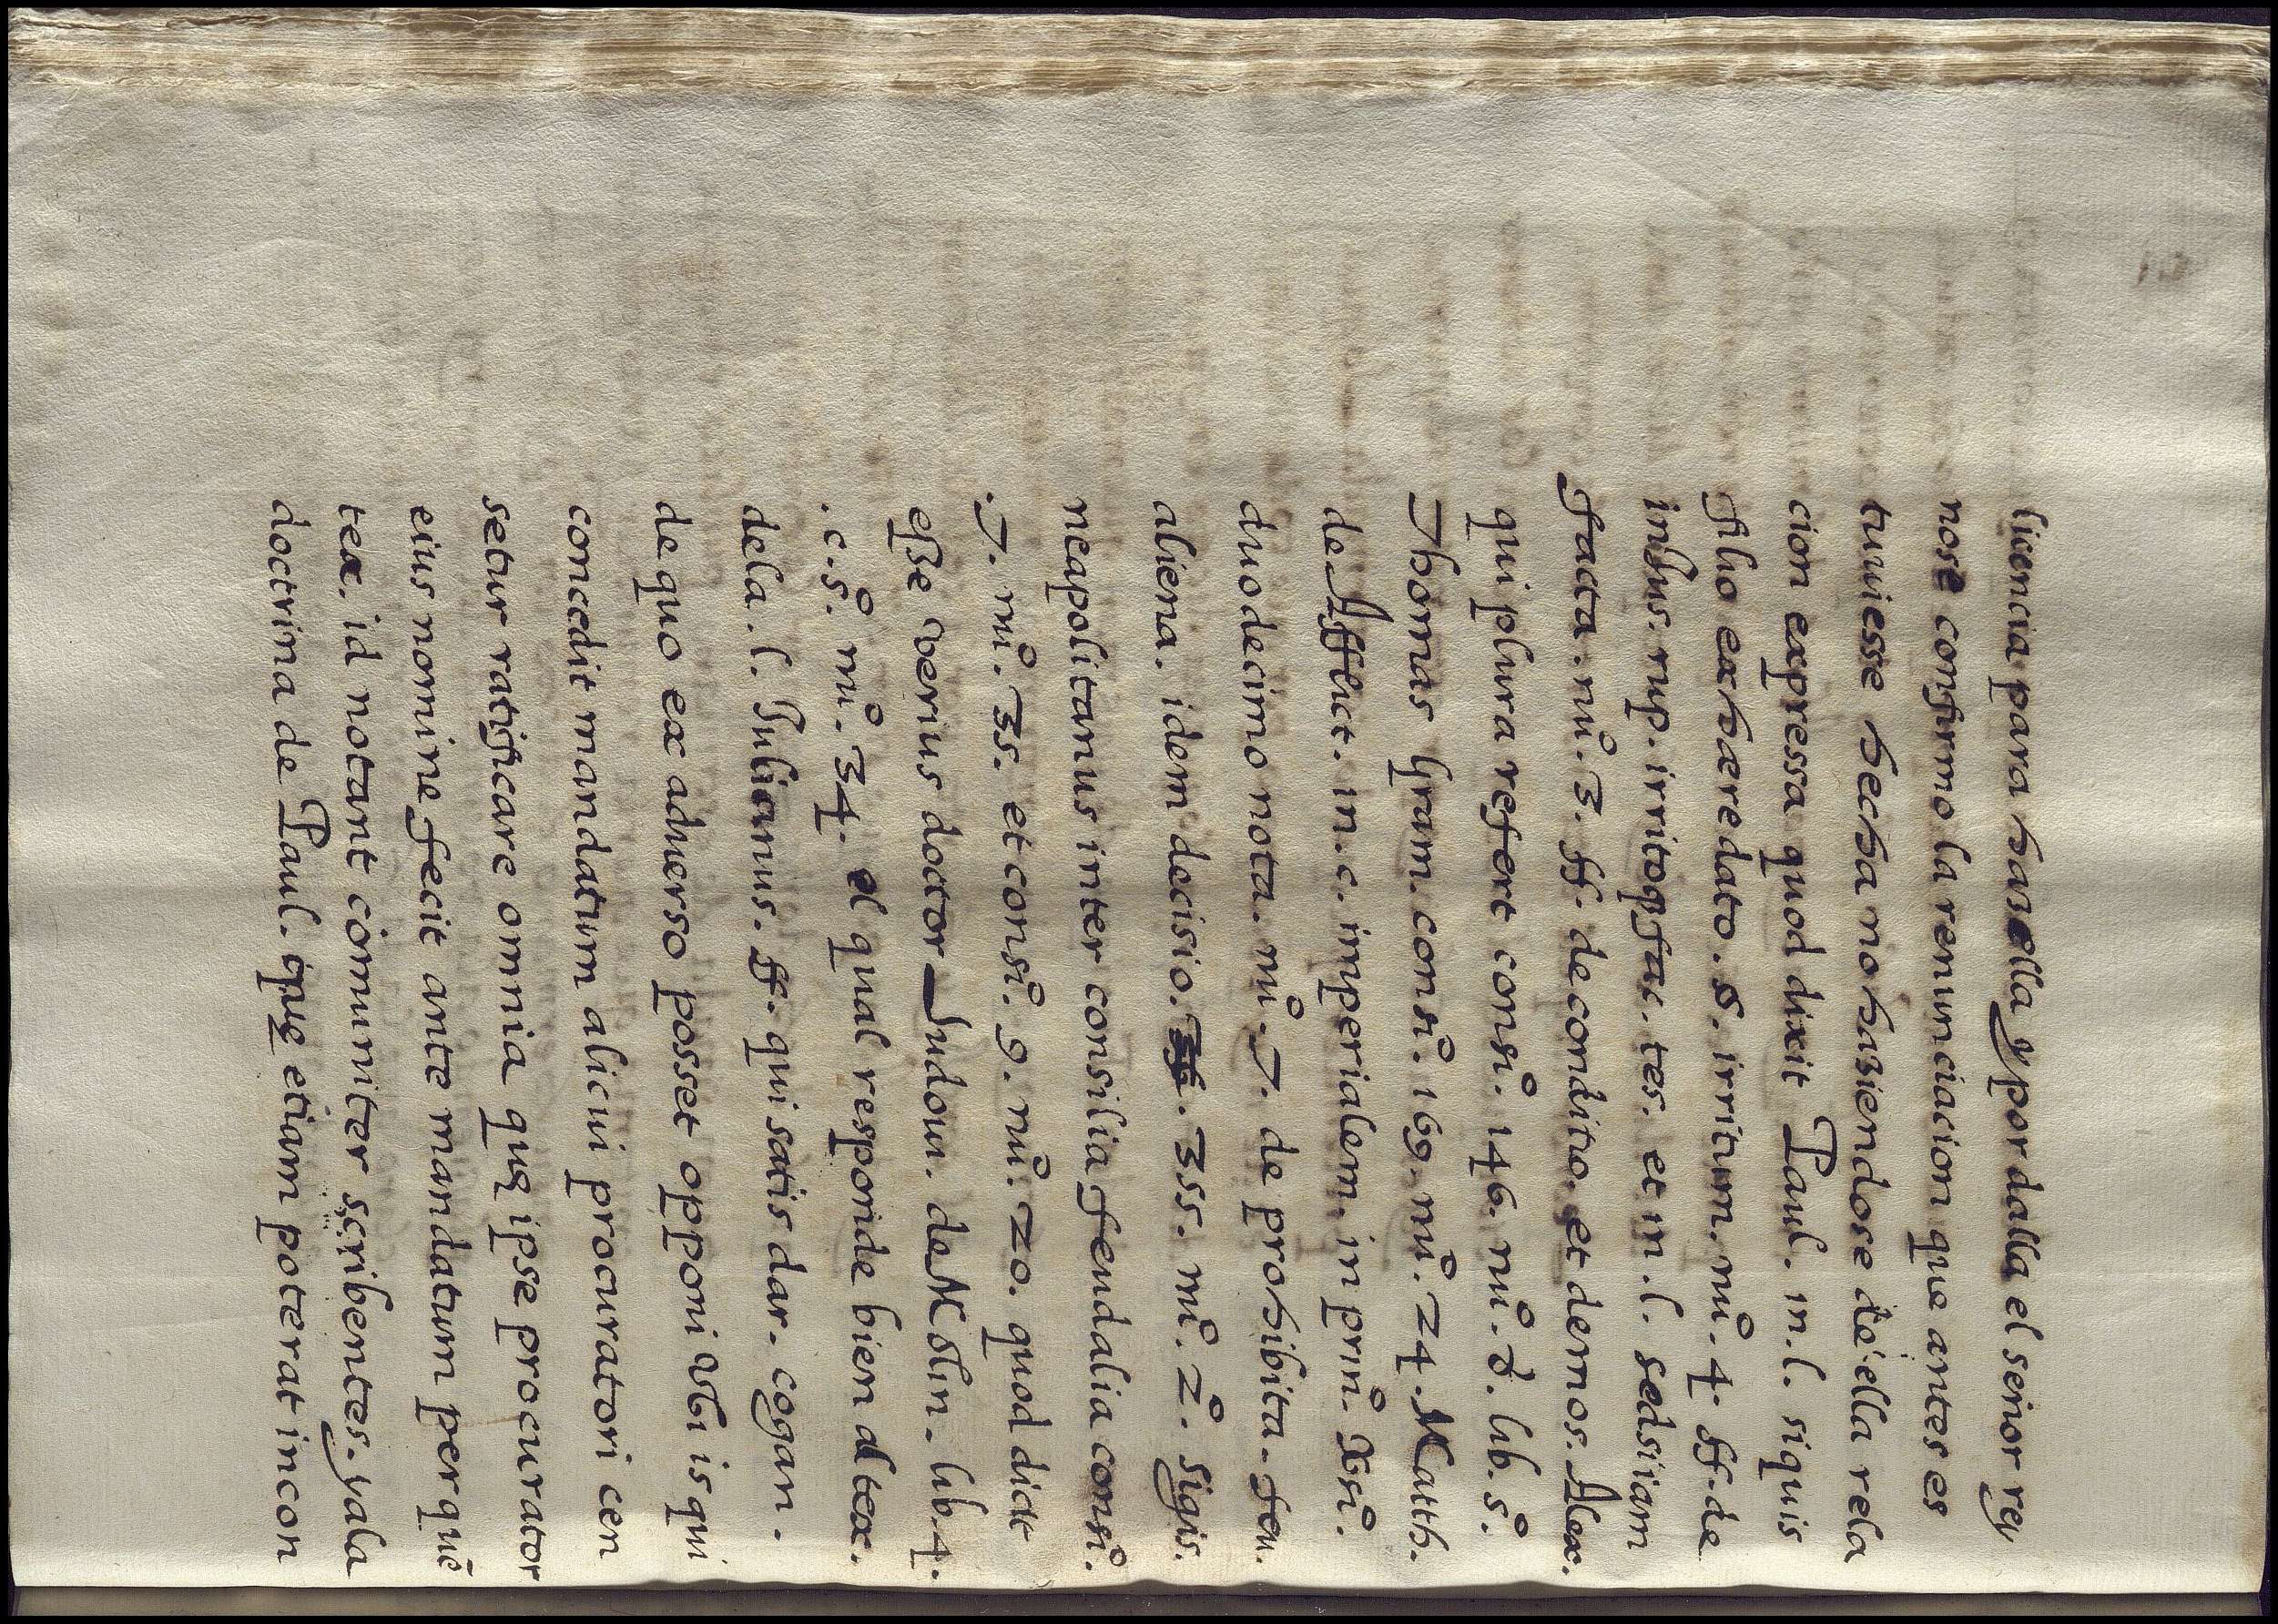 licencia para hazella y por dalla el señor rey
nose confirmo la renunciacion que antes es
tuuiesse hecha no haziendose de ella rela
cion expressa quod dixit Paul. in. l. siquis
filio exhæredato. §. irritum. nu. 4. ff. de
iniusº. rup. irritoqɜ fac. tes. et in. l. sedsi iam
facta. nu. 3. ff. de conditio. et demos. Alex.
qui plura refert consi. 146. nu. 8. lib. 5.
Thomas Gram. consi. 169. nu. 24. Matth.
de Afflict. in. c. imperialem. in prin. Vsi.
duodecimo nota. nu. 7. de prohibita. feu.
aliena. idem decisio. 355. nu. 2. Sigis.
neapolitanus inter consilia feudalia consi.
7. nu. 35. et consi. 9. nu. 20. quod dicit
esse verius doctor Ludoui. de Molin. lib. 4.
.c. 5. nu. 34. el qual responde bien al tex.
dela. l. Iulianus. ff. qui satis dar. cogan.
de quo ex aduerso posset opponi vbi is qui
concedit mandatum alicui procuratori cen
setur ratificare omnia quę ipse procurator
eius nomine fecit ante mandatum per quē
tex. id notant cōmuniter scribentes. yala
doctrina de Paul. quę etiam poterat incon